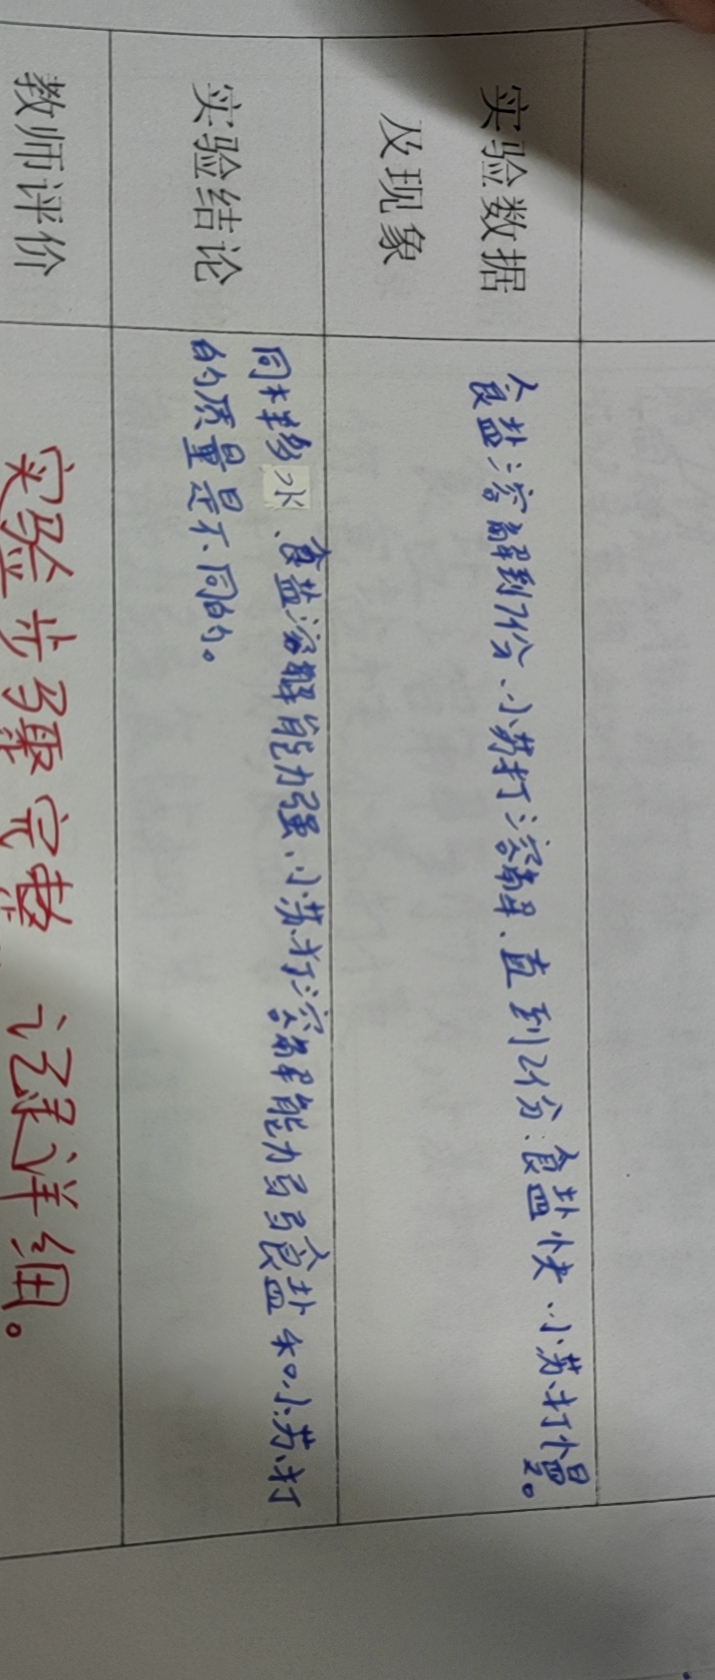 实验数据
及现象
食盐溶解到7份、小苏打溶解、直到2份、食盐快、小苏打慢。
实验结论
同样多水、食盐溶解能力强、小苏打溶解能力弱食盐和小苏打
的质量是不同的。
教师评价
实验步骤完整，记录详细。